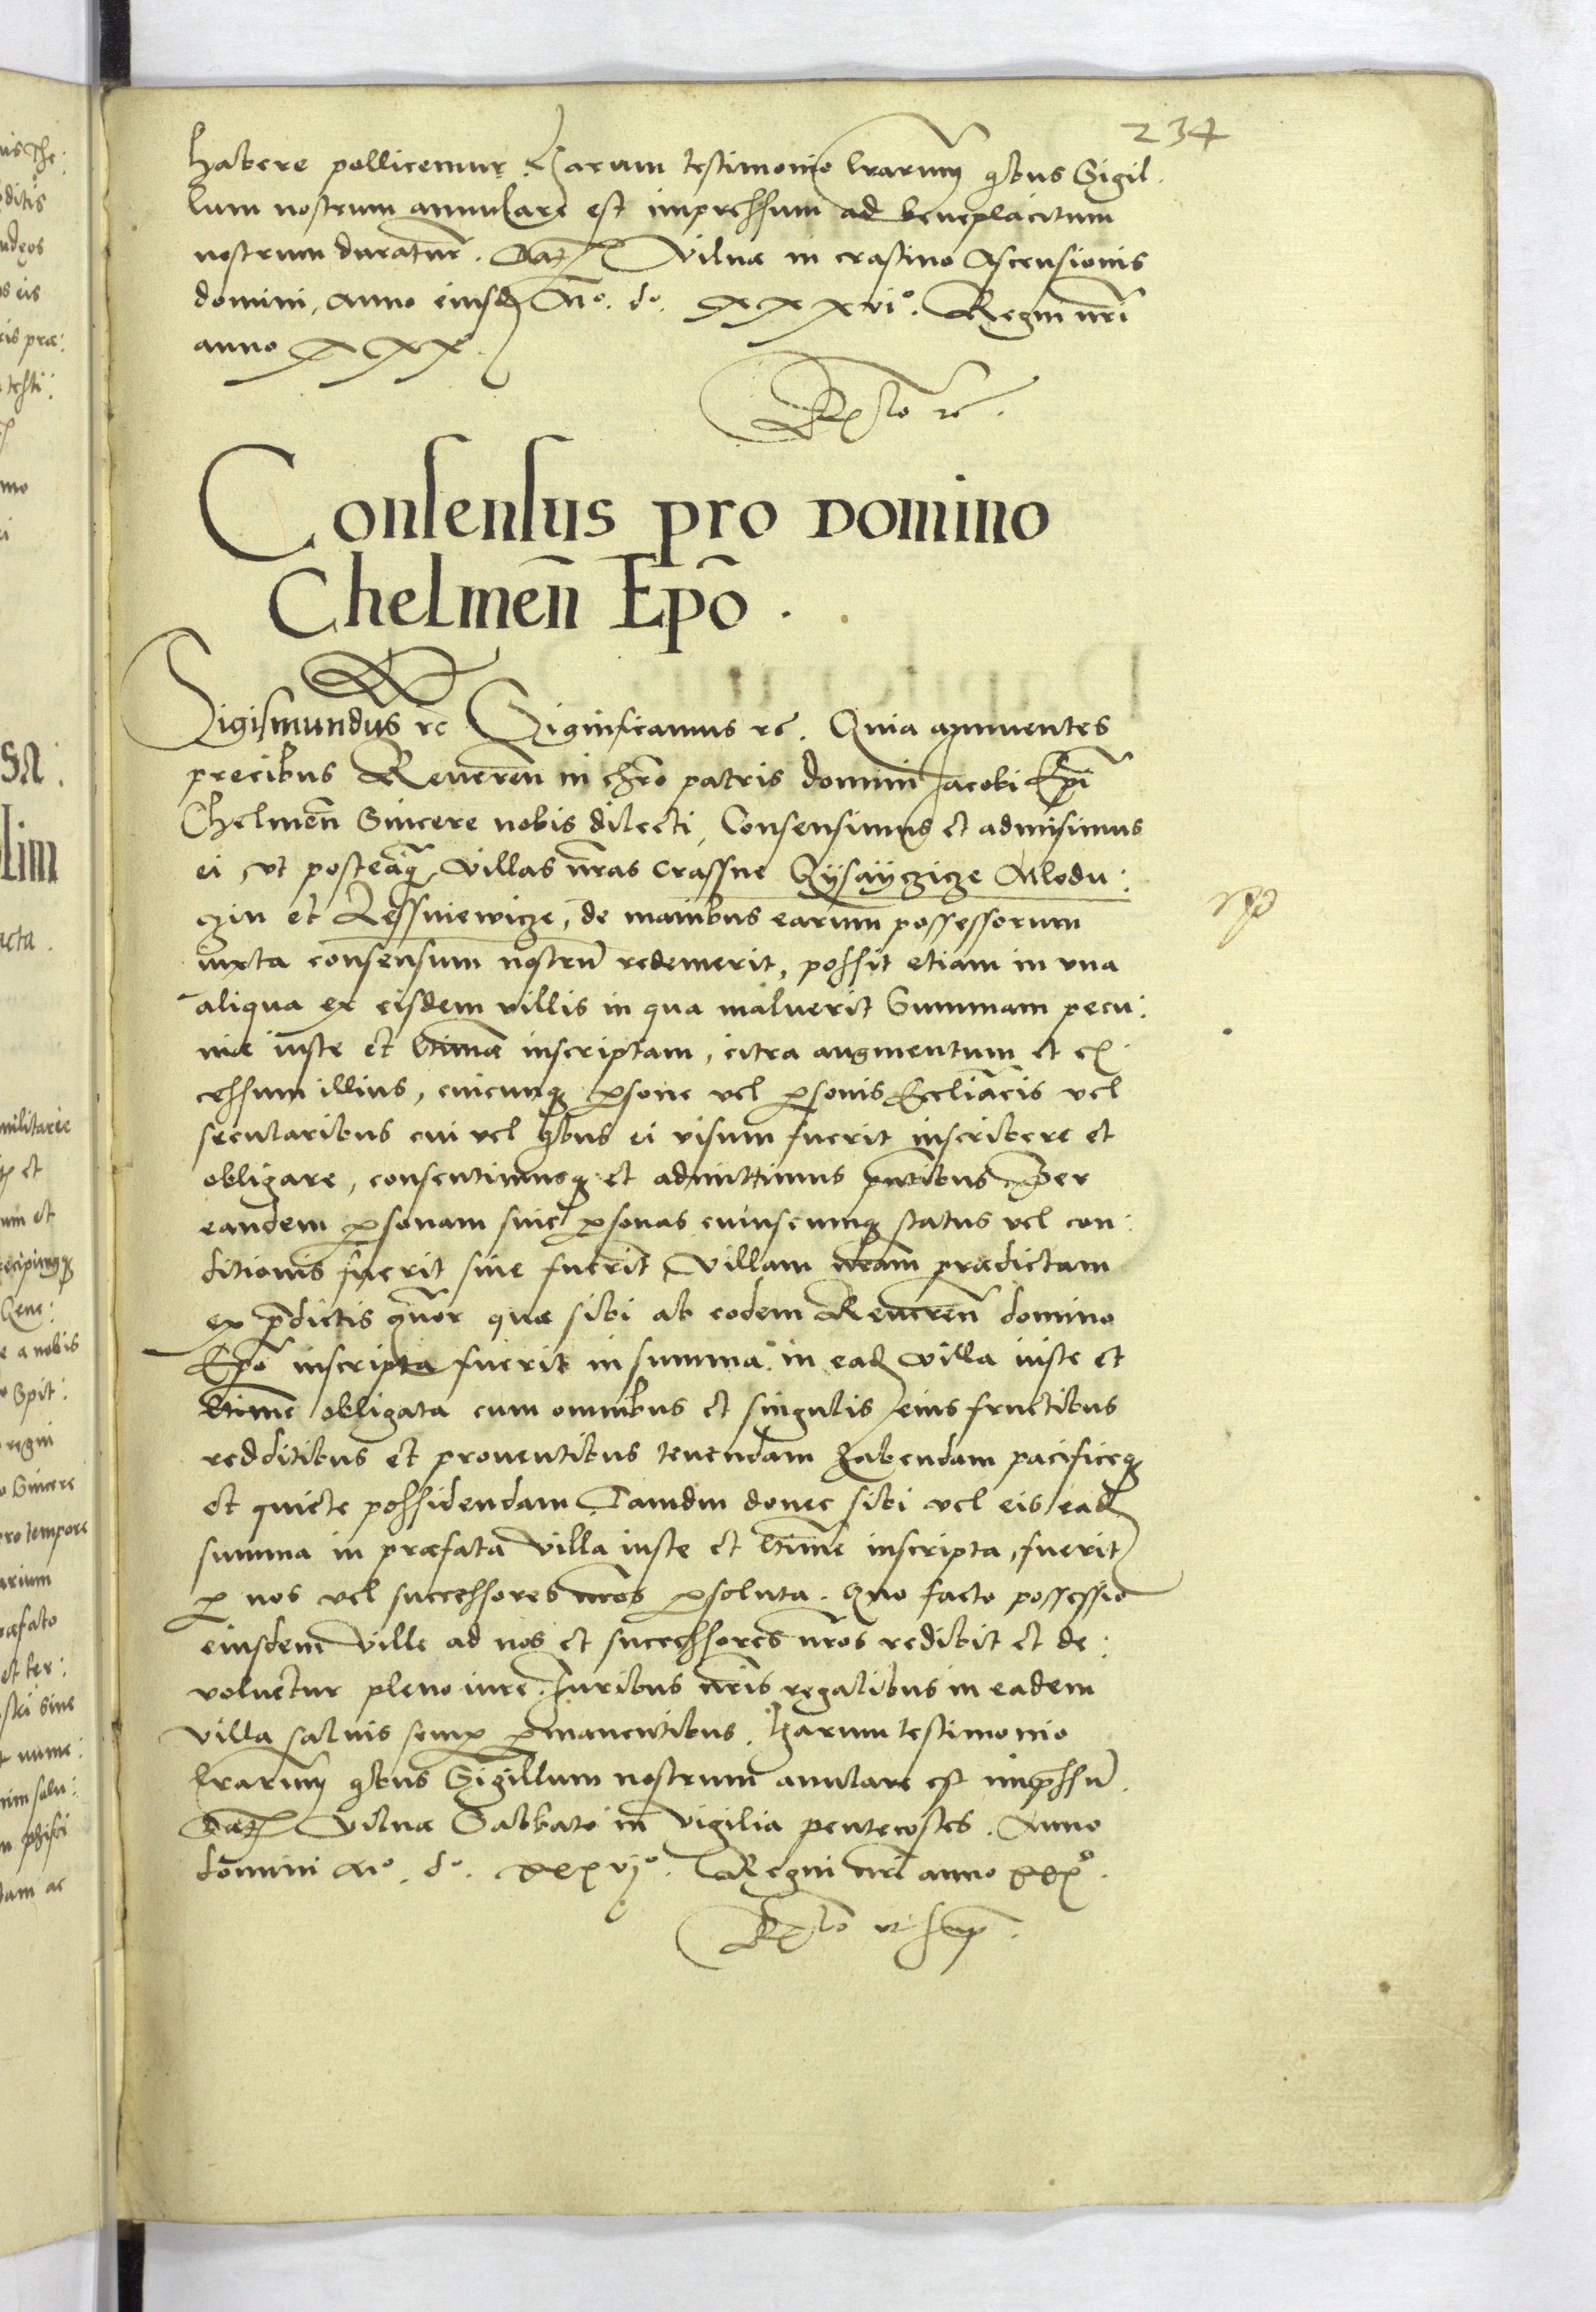 234
habere pollicemur. Harum testimonio lrarum qbus Sigil
lum nostrum annulare est impressum ad beneplacitum
nostrum duratur. Dat Vilnæ in crastino Ascensionis
domini, Anno eiusd Mo. do. xxxvio. Regni nri
anno xxx.
Rlo rc.
Consensus pro Domino
Chelmen̄ Epō.
Sigismundus rc Significamus rc. Quia annuentes
precibus Reveren in chro patris domini Jacobi Epi
Chelmen̄ Sincere nobis dilecti, Consensimus et admisimus
ei, vt posteaq villas nras Crassne Gysayczicze Mlodu:
czin et Lessniewicze, de manibus earum possessorum
iuxta consensum nostrū redemerit, possit etiam in vna
aliqua ex eisdem villis in qua maluerit Summam pecu:
niæ iuste et ltimæ inscriptam, citra augmentum et ex
cessum illius, cuicunq psone vel psonis Eccliacis vel
secularibus cui vel qbus ei visum fuerit inscribere et
obligare, consentimusq et admittimus pntibus Per
eandem psonam siue psonas cuiuscunq status vel con:
ditionis fuerit siue fuerit, Villam nram prædictam
ex pdictis qtuor quæ sibi ab eodem Reveren̄ domino
Epō inscripta fuerit in summa in ead villa iuste et
ltime obligata cum omnibus et singulis eius fructibus
redditibus et prouentibus tenendam habendam pacificeq
et quiete possidendam Tamdiu donec sibi vel eis ead
summa in præfata villa iuste et ltime inscripta, fuerit
p nos vel successores nros psoluta. Quo facto possessio
eiusdem ville ad nos et successores nros redibit et de:
voluetur pleno iure. Juribus nris regalibus in eadem
villa saluis semp pmanentibus. harum testimonio
lrarum qbus Sigillum nostrum anulare est impssū.
Dat Vilnæ Sabbato in Vigilia pentecostes. Anno
domini Mo. do. xxxvjo. Regni nri anno xxxo.
Rlo vt sup.